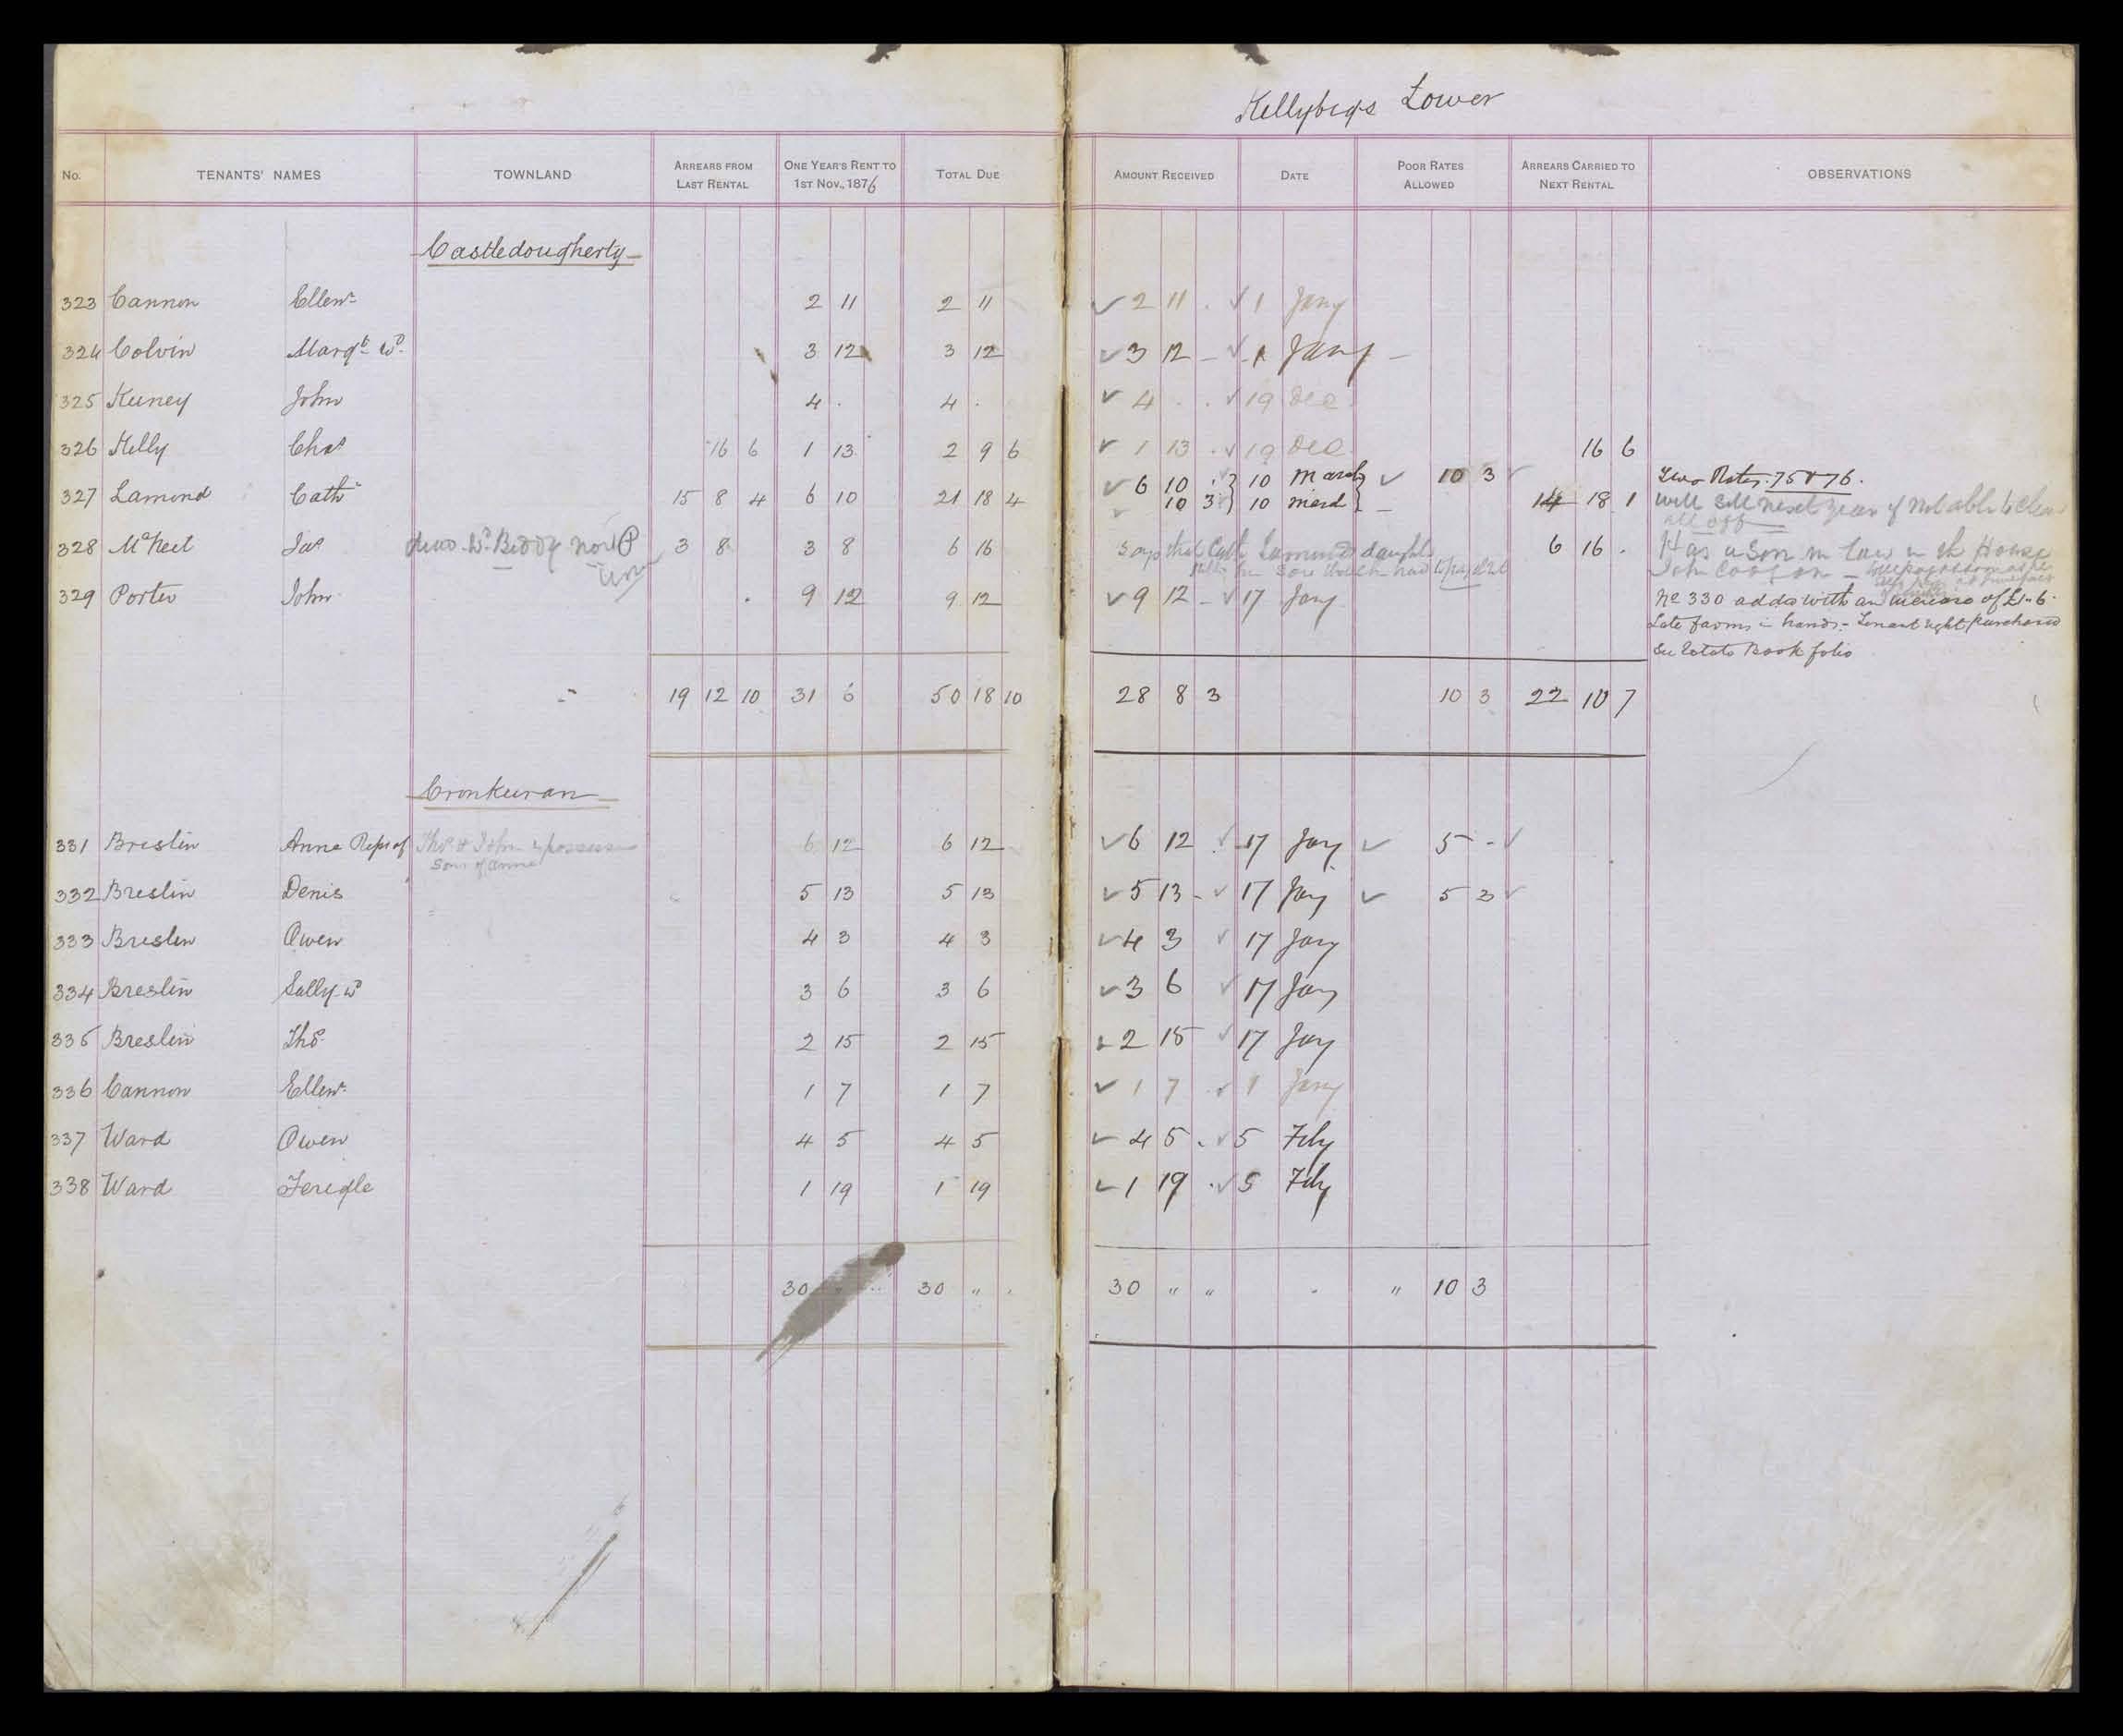 Killybegs Lower
No. TENANTS' NAMES TOWNLAND ARREARS FROM LAST RENTAL ONE YEAR'S RENT TO 1ST NOV., 1876 TOTAL DUE AMOUNT RECEIVED DATE POOR RATES ALLOWED ARREARS CARRIED TO NEXT RENTAL OBSERVATIONS
Castledougherty
323 Cannon Ellen 2 11 2 11 ✓ 2 11 . ✓ 1 Jany
324 Colvin Margt Wd 3 12 3 12 ✓ 3 12 – ✓ 1 Jany –
325 Keeney John 4 . 4 . ✓ 4 . . ✓ 19 Dec
326 Kelly Chas 16 6 1 13 2 9 6 ✓ 1 13 . ✓ 19 Dec 16 6
327 Lamond Cath 15 8 4 6 10 21 18 4 ✓ 6 10 . } 10 March } ✓ 10 3 ✓ Two Rates 75 & 76.
10 3 } 10 March } – 14 18 1 will sell next year if not able to clear
all off
328 McNeel Jas Wd Biddy now 3 8 3 8 6 16 says that Cath Lamond daughter 6 16 . Has a Son in law in the House
John
329 Porter John 9 12 9 12 ✓ 9 12 – ✓ 17 Jany No 330 added with an increase of £1-6-
Late farms in hands - Tenant right purchased
See Estate Book folio
19 12 10 31 6 50 18 10 28 8 3 10 3 22 10 7
Cronkeeran
331 Breslin Anne Reps of Thos & John in possession 6 12 6 12 ✓ 6 12 ✓ 17 Jany ✓ 5 - ✓
Sons of Anne
332 Breslin Denis 5 13 5 13 ✓ 5 13 - ✓ 17 Jany ✓ 5 3 ✓
333 Breslin Owen 4 3 4 3 ✓ 4 3 ✓ 17 Jany
334 Breslin Sally Wd 3 6 3 6 ✓ 3 6 ✓ 17 Jany
335 Breslin Thos 2 15 2 15 ✓ 2 15 ✓ 17 Jany
336 Cannon Ellen 1 7 1 7 ✓ 1 7 . ✓ 1 Jany
337 Ward Owen 4 5 4 5 ✓ 4 5 . ✓ 5 Feby
338 Ward Feregle 1 19 1 19 ✓ 1 19 . ✓ 5 Feby
30 " " 30 " " 30 " " " 10 3